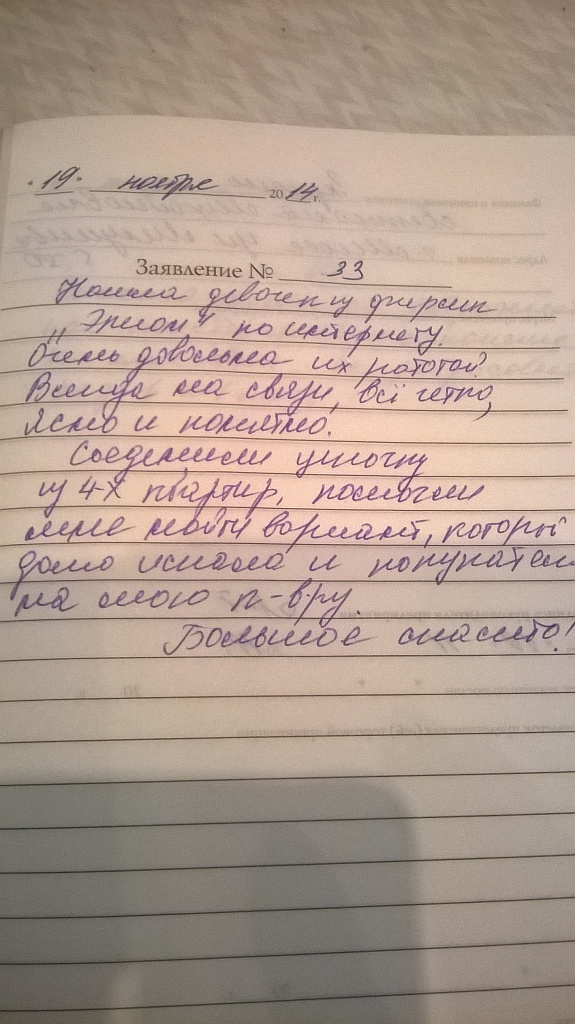 "19" ноября 2014 г.
Заявление № 33
Нашла девочек из фирмы
"Эталон" по интернету.
Очень довольна их работой.
Всегда на связи, всё четко,
ясно и понятно.
Соеденили цепочку
из 4-х квартир, помогли
мне найти вариант, который
долго искала и покупателя
на мою к-вру.
Большое спасибо!